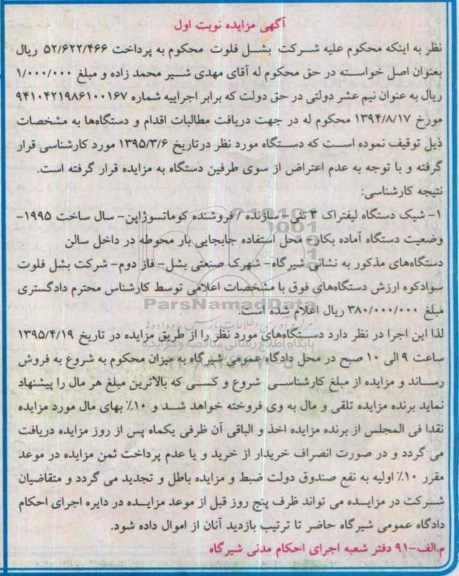 آگهی مزایده نوبت اول
نظر به اینکه محکوم علیه شرکت بشل فلوت محکوم به پرداخت ۵۲/۶۲۲/۴۶۶ ریال
بعنوان اصل خواسته در حق محکوم له آقای مهدی شیر محمد زاده و مبلغ ۱/۰۰۰/۰۰۰
ریال به عنوان نیم عشر دولتی در حق دولت که برابر اجراییه شماره ۹۴۱۰۴۲۱۹۸۶۱۰۰۱۶۷
مورخ ۱۳۹۴/۸/۱۷ محکوم له در جهت دریافت مطالبات اقدام و دستگاه‌ها به مشخصات
ذیل توقیف نموده است که دستگاه مورد نظر درتاریخ ۱۳۹۵/۳/۶ مورد کارشناسی قرار
گرفته و با توجه به عدم اعتراض از سوی طرفین دستگاه به مزایده قرار گرفته است.
نتیجه کارشناسی:
۱- شیک دستگاه لیفتراک ۳ تنی- سازنده / فروشنده کوماتسوژاپن- سال ساخت ۱۹۹۵-
وضعیت دستگاه آماده بکار- محل استفاده جابجایی بار محوطه در داخل سالن
دستگاه‌های مذکور به نشانی شیرگاه- شهرک صنعتی بشل- فاز دوم- شرکت بشل فلوت
سوادکوه ارزش دستگاه‌های فوق با مشخصات اعلامی توسط کارشناس محترم دادگستری
مبلغ ۳۸۰/۰۰۰/۰۰۰ ریال اعلام شده است.
لذا این اجرا در نظر دارد دستگاه‌های مورد نظر را از طریق مزایده در تاریخ ۱۳۹۵/۴/۱۹
ساعت ۹ الی ۱۰ صبح در محل دادگاه عمومی شیرگاه به میزان محکوم به شروع به فروش
رساند و مزایده از مبلغ کارشناسی شروع و کسی که بالاترین مبلغ هر مال را پیشنهاد
نماید برنده مزایده تلقی و مال به وی فروخته خواهد شد و ۱۰٪ بهای مال مورد مزایده
نقدا فی المجلس از برنده مزایده اخذ و الباقی آن ظرفی یکماه پس از روز مزایده دریافت
می گردد و در صورت انصراف خریدار از خرید و یا عدم پرداخت ثمن مزایده در موعد
مقرر ۱۰٪ اولیه به نفع صندوق دولت ضبط و مزایده باطل و تجدید می گردد و متقاضیان
شرکت در مزایده می تواند ظرف پنج روز قبل از موعد مزایده در دایره اجرای احکام
دادگاه عمومی شیرگاه حاضر تا ترتیب بازدید آنان از اموال داده شود.
م.الف-۹۱ دفتر شعبه اجرای احکام مدنی شیرگاه
ParsNamadData